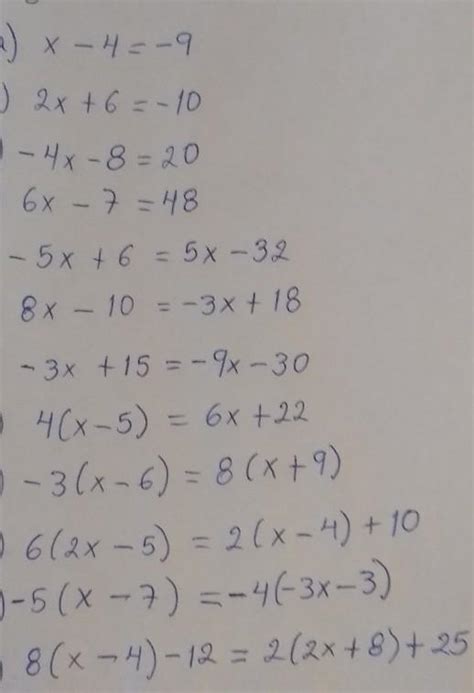 a) x - 4 = -9
) 2x + 6 = -10
) -4x - 8 = 20
6x - 7 = 48
-5x + 6 = 5x - 32
8x - 10 = -3x + 18
-3x + 15 = -9x - 30
) 4(x - 5) = 6x + 22
) -3(x - 6) = 8(x + 9)
) 6(2x - 5) = 2(x - 4) + 10
) -5(x - 7) = -4(-3x - 3)
) 8(x - 4) - 12 = 2(2x + 8) + 25